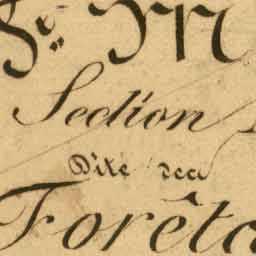 Se M
Section
Dite des
Forêts